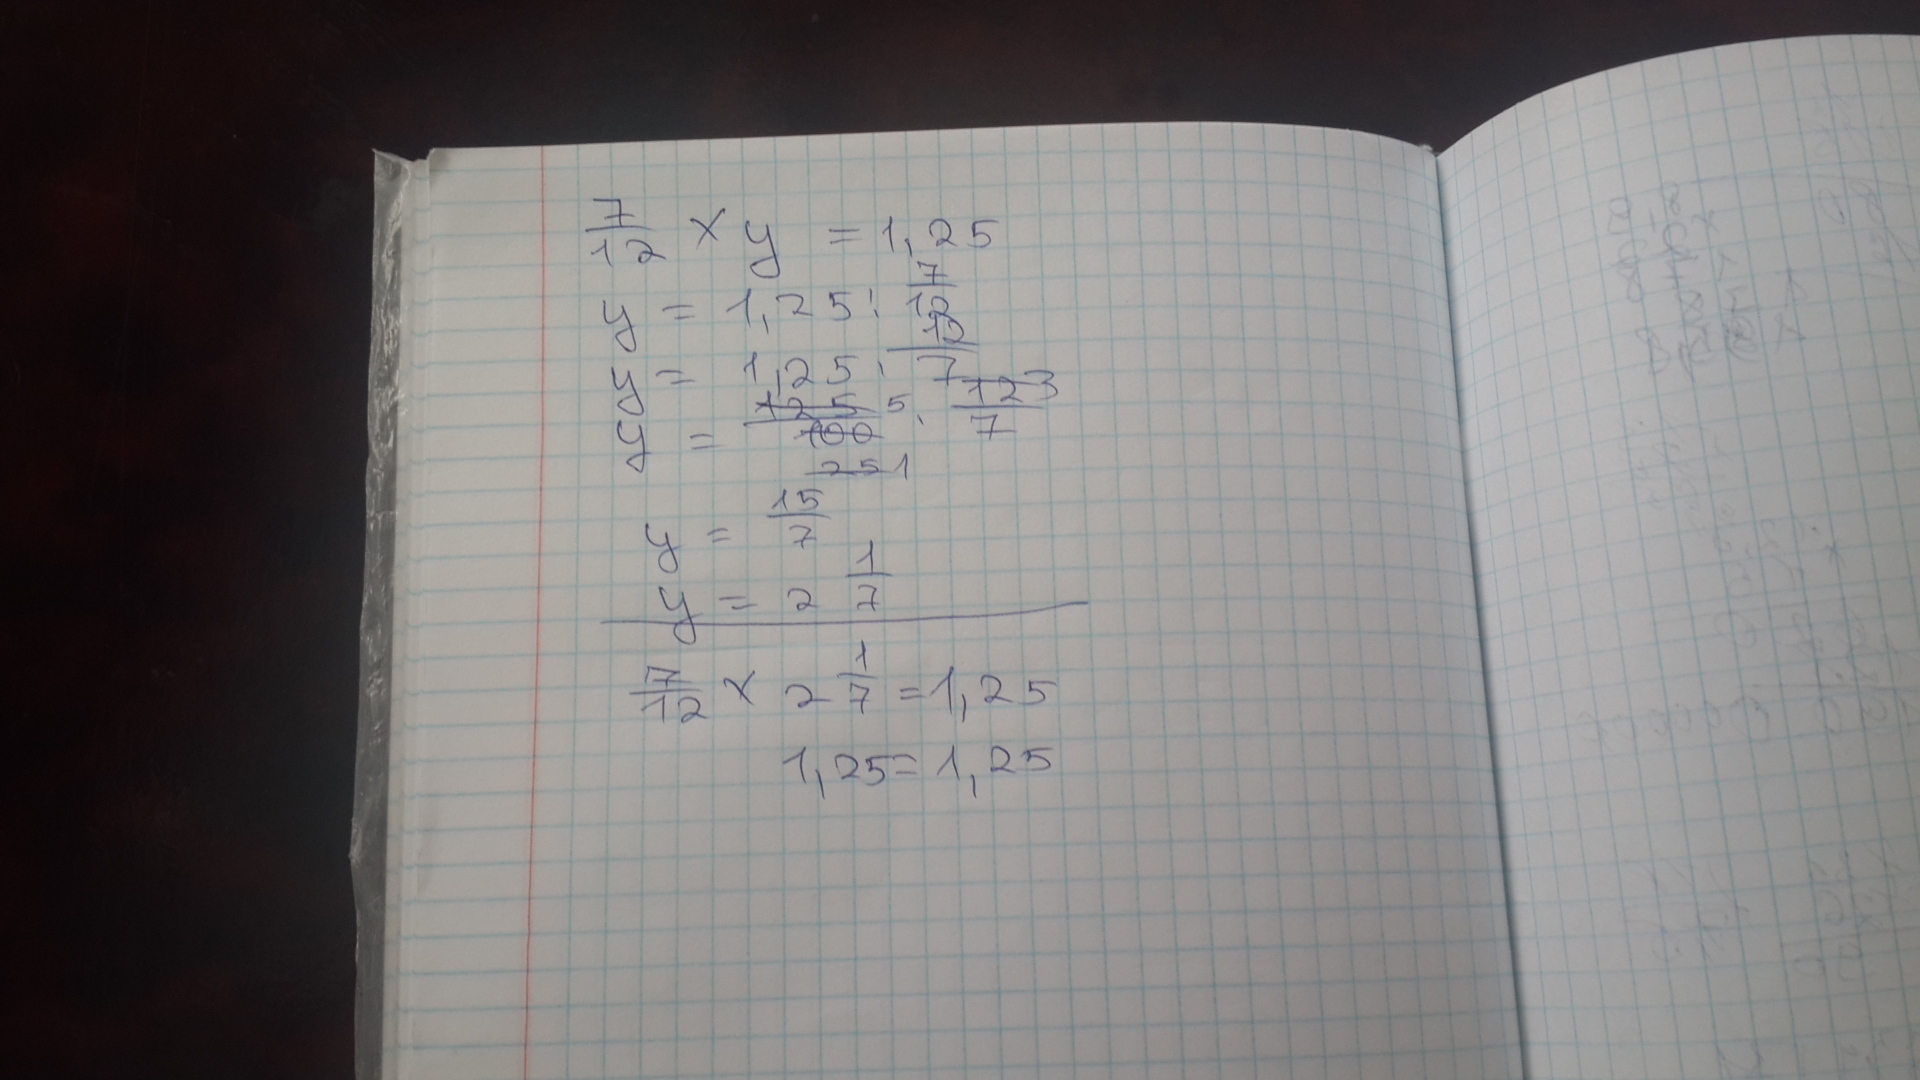 7/12 × y = 1,25
y = 1,25 : 7/12
y = 1,25 · 12/7
y = 125 5/100 25 1 · 12 3/7
y = 15/7
y = 2 1/7
7/12 × 2 1/7 = 1,25
1,25 = 1,25